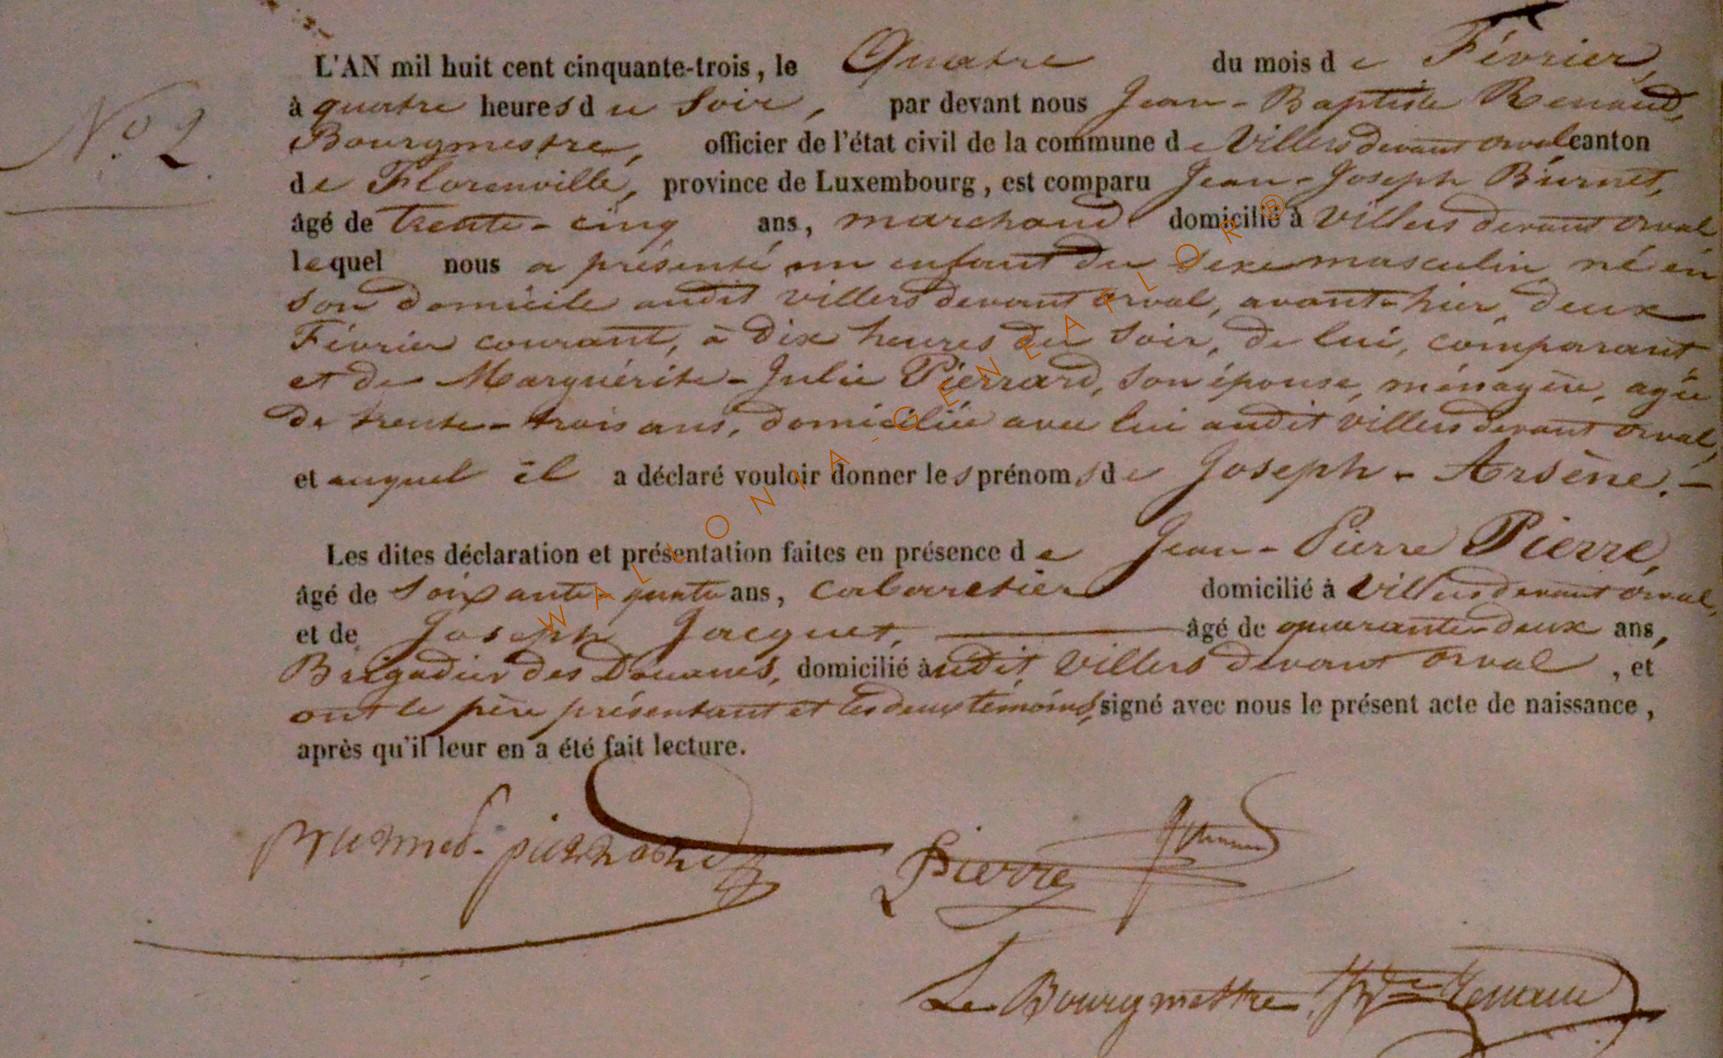 L'AN mil huit cent cinquante-trois, le Quatre du mois de Février,
N.º 2
à quatre heures du soir, par devant nous Jean-Baptiste Renaud,
Bourgmestre, officier de l'état civil de la commune de Villers devant orval canton
de Florenville, province de Luxembourg, est comparu Jean-Joseph Burnet,
âgé de trente-cinq ans, marchand domicilié à Villers devant orval
lequel nous a présenté un enfant du sexe masculin, né en
son domicile audit villers devant orval, avant-hier, deux
Février courant, à dix heures du soir, de lui, comparant
et de Marguérite-Julie Pierrard, son épouse, ménagère, agée
de trente-trois ans, domiciliée avec lui audit villers devant orval,
et auquel il a déclaré vouloir donner les prénoms de Joseph-Arsène.-
Les dites déclaration et présentation faites en présence de Jean-Pierre Pierre,
âgé de soixante-quatre ans, cabaretier domicilié à Villers devant orval,
et de Joseph Jacquet, âgé de quarante-deux ans,
Brigadier des Douanes, domicilié audit Villers devant orval, et
ont le père présentant et les deux témoins, signé avec nous le présent acte de naissance,
après qu'il leur en a été fait lecture.
Pierre
Le Bourgmestre
WALLONIA-GENEAFLOR®